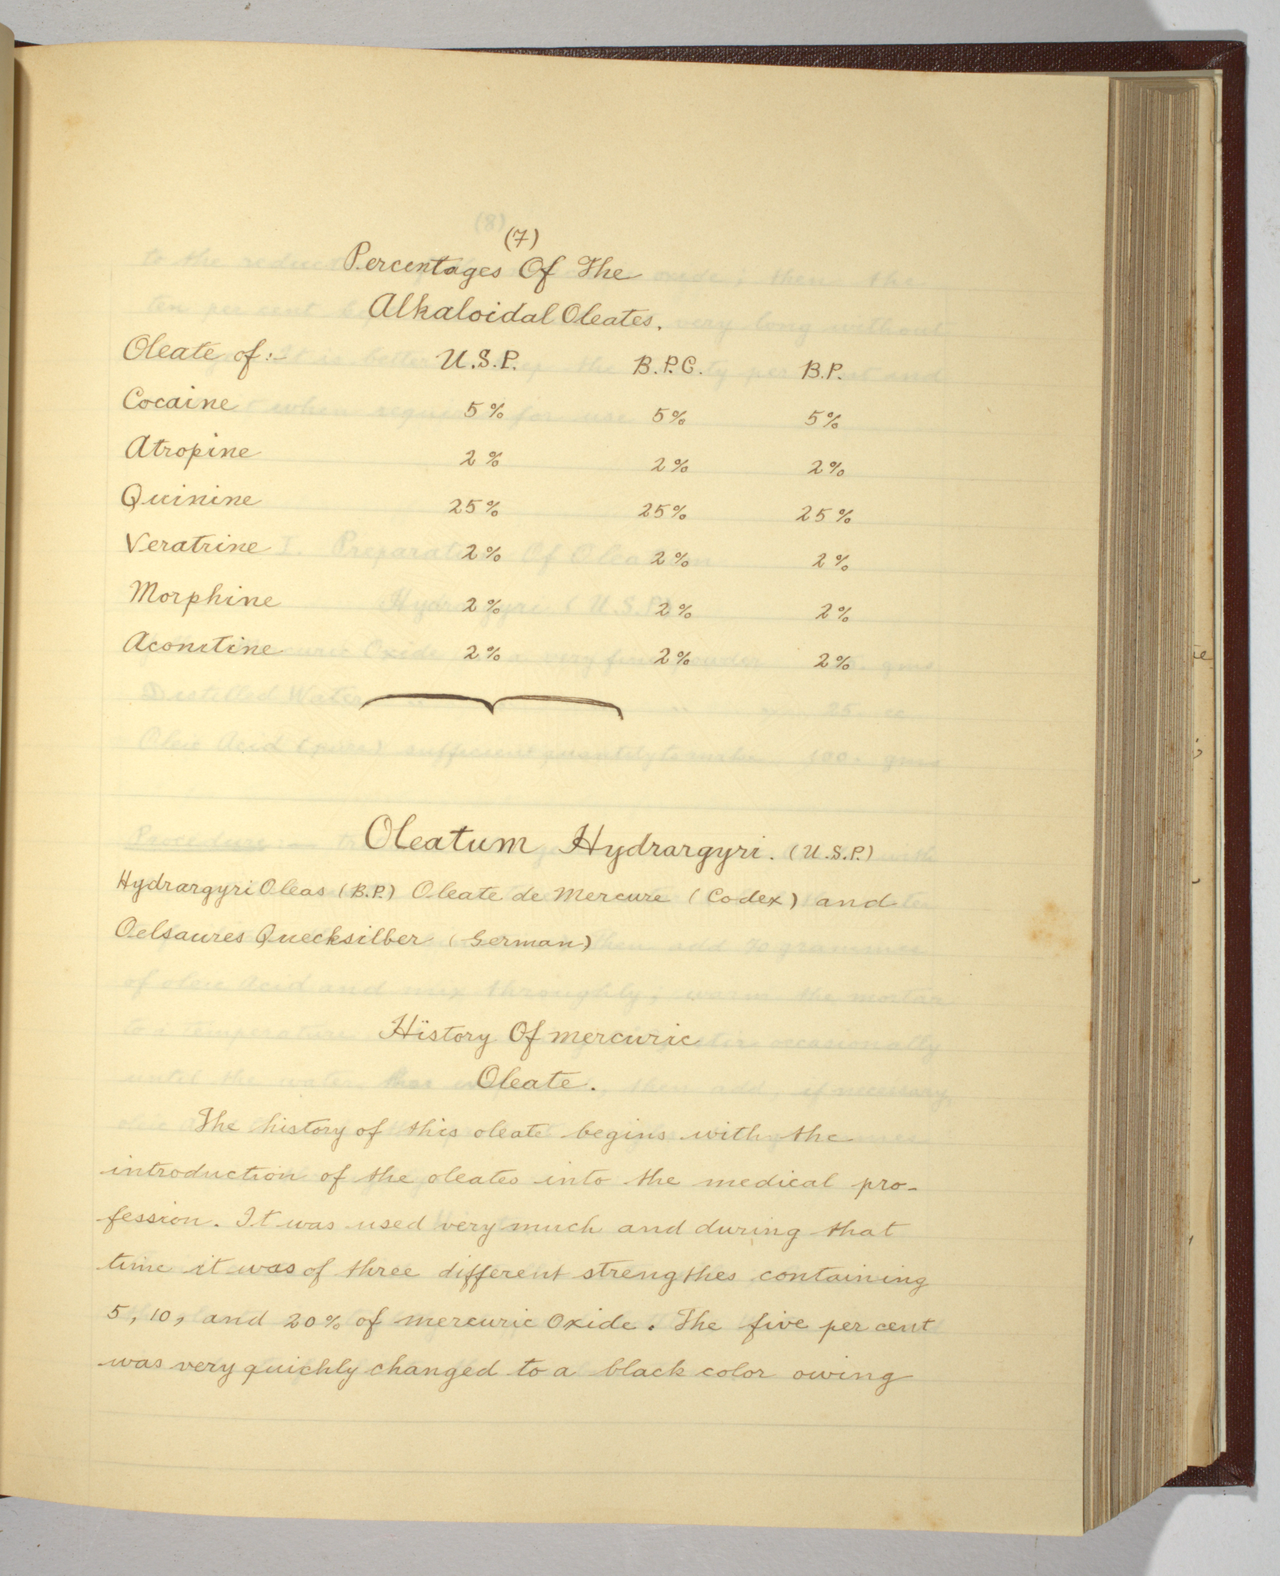 (7)
Percentages Of The
Alkaloidal Oleates.
Oleate of:- U.S.P. B.P.C. B.P.
Cocaine 5% 5% 5%
Atropine 2% 2% 2%
Quinine 25% 25% 25%
Veratrine 2% 2% 2%
Morphine 2% 2% 2%
Aconitine 2% 2% 2%
Oleatum Hydrargyri. (U.S.P.)
Hydrargyri Oleas (B.P.) Oleate de Mercure (Codex) and
Oelsaures Quecksilber (German)
History Of mercuric
Oleate.
The history of this oleate begins with the
introduction of the oleates into the medical pro-
fession. It was used very much and during that
time it was of three different strengthes containing
5, 10, and 20% of mercuric Oxide. The five per cent
was very quickly changed to a black color owing